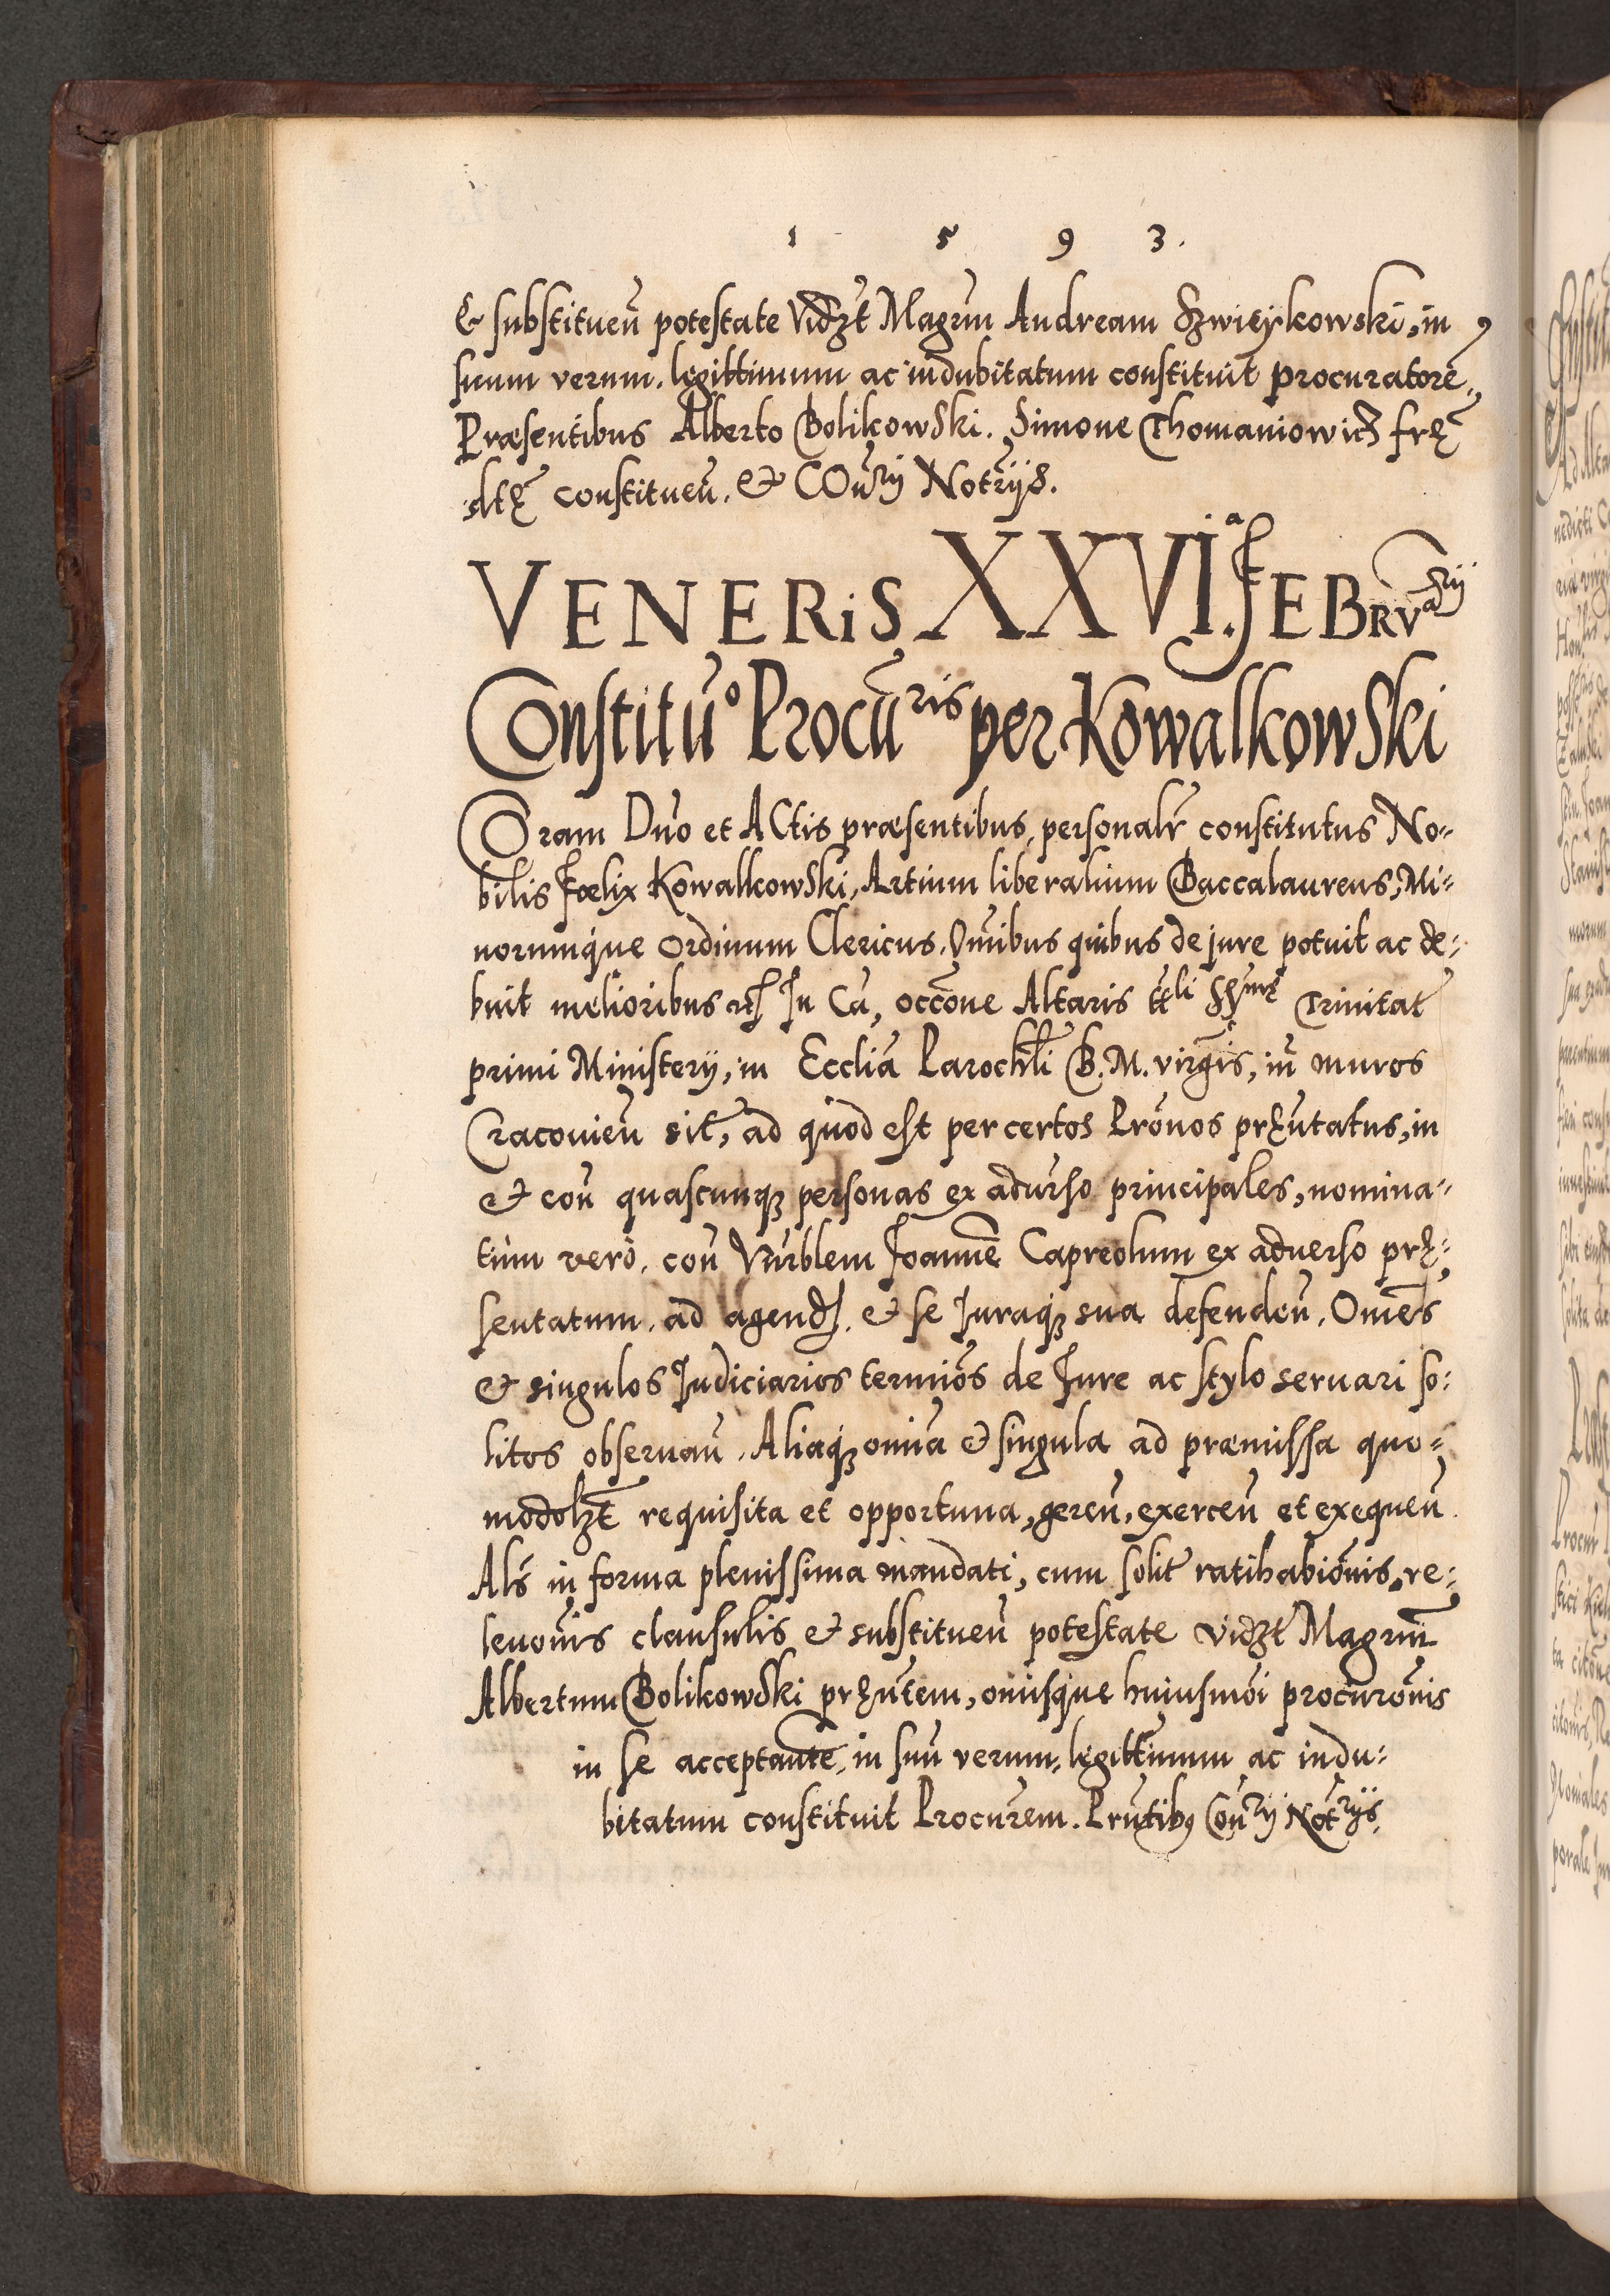 1 5 9 3.
& substitueñ potestate Vidzt Magrm Andream Szwieykowski, in
suum verum, legittimum ac indubitatum constituit procuratorē,
Præsentibus Alberto Bolikowski. Simone Thomaniowicz frę
dtę constitueñ. & COnrÿ Notrijs.
VENERiS XXVI.ª FEBRVarij
Constitu° Procuris per Kowalkowski
Coram Dno et ACtis præsentibus, personalr constitutus No-
bilis Fœlix Kowalkowski, Artium liberalium Baccalaureus, Mi-
norumque Ordinum Clericus. Omibus quibus de jure potuit ac de-
buit melioribus In Ca, occone Altaris ttli SSmę Trinitat
primi Ministerÿ, in Ecclia Parochli B. M. virgis, in muros
Cracouieñ sit, ad quod est per certos Pronos pręntatus, in
& coñ quascunq personas ex aduerso principales, nomina-
tim vero, coñ Vnrblem Joannē Capreolum ex aduerso prę-
sentatum, ad agend. & se Juraq sua defendeñ. Omēs
& singulos Judiciarios termios de Jure ac stylo seruari so-
litos obseruañ. Aliaq omia & singula ad præmissa quo-
modolzt requisita et opportuna, gereñ, exerceñ et exequeñ
Als in forma plenissima mandati, cum solit ratihabionis, re-
leuonis clausulis & substitueñ potestate vidzt Magrm
Albertum Bolikowski pręntem, onusque huiusmoi procuronis
in se acceptante, in suū verum, legittimum ac indu-
bitatum constituit Procurem. Prntibus Conrÿ Notrijs.